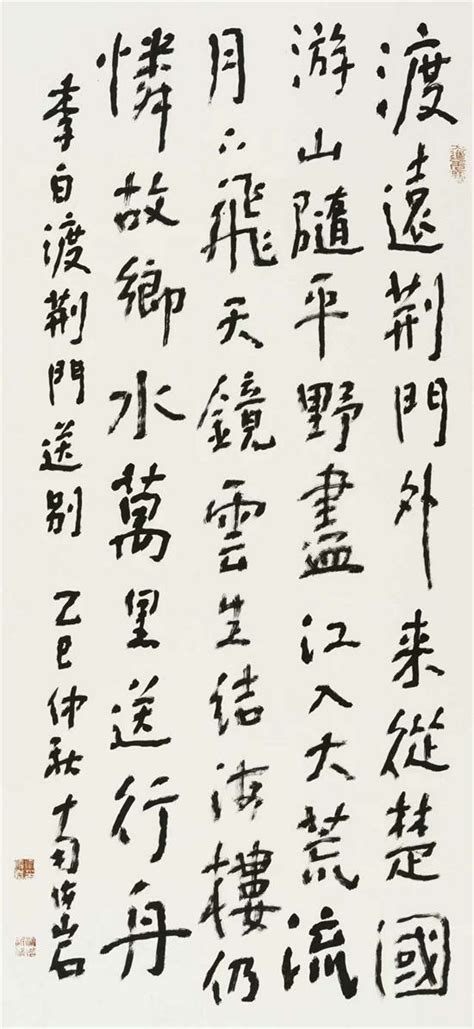 渡遠荆門外来從楚國
游山隨平野盡江入大荒流
月下飛天鏡雲生結海樓仍
憐故鄉水萬里送行舟
李白渡荆門送别 乙巳仲秋